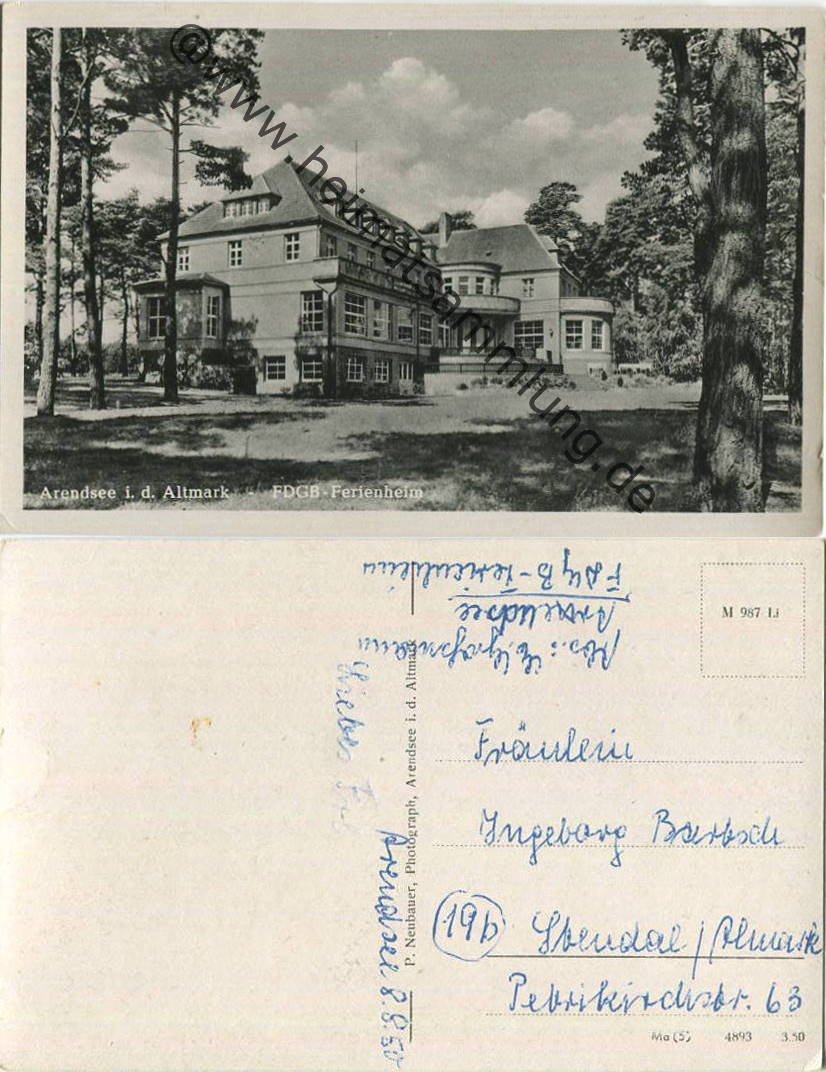 @www.heimatsammlung.de
Arendsee i. d. Altmark - FDGB-Ferienheim
FDGB-Ferienheim
Arendsee
M 987 Li
Liebes
P. Neubauer, Photograph, Arendsee i. d. Altmark
Arendsee 8.8.50
Fräulein
Ingeborg Bartsch
(19b) Stendal / Altmark
Petrikirchstr. 63
Ma (5) 4893 3.50